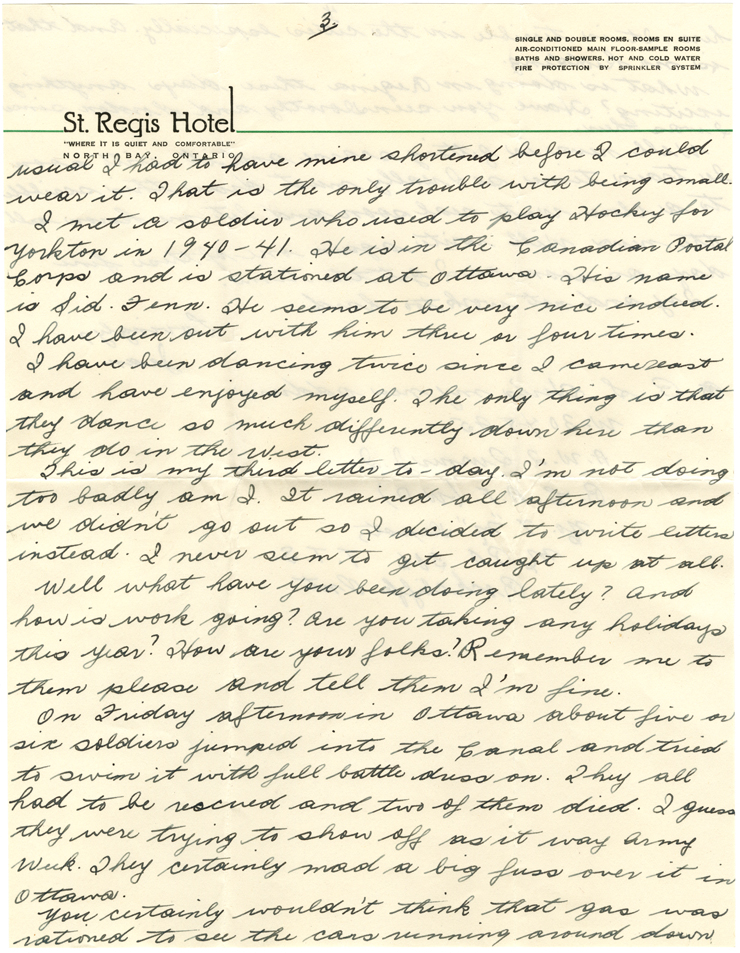 3
SINGLE AND DOUBLE ROOMS. ROOMS EN SUITE
AIR-CONDITIONED MAIN FLOOR-SAMPLE ROOMS
BATHS AND SHOWERS. HOT AND COLD WATER
FIRE PROTECTION BY SPRINKLER SYSTEM
St. Regis Hotel
"WHERE IT IS QUIET AND COMFORTABLE"
NORTH BAY, ONTARIO
usual I had to have mine shortened before I could
wear it. That is the only trouble with being small.
I met a soldier who used to play Hockey for
Yorkton in 1940-41. He is in the Canadian Postal
Corps and is stationed at Ottawa. His name
is Sid. Fenn. He seems to be very nice indeed.
I have been out with him three or four times.
I have been dancing twice since I came east
and have enjoyed myself. The only thing is that
they dance so much differently down here than
they do in the West.
This is my third letter to-day. I'm not doing
too badly am I. It rained all afternoon and
we didn't go out so I decided to write letters
instead. I never seem to get caught up at all.
Well what have you been doing lately? And
how is work going? Are you taking any holidays
this year? How are your folks? Remember me to
them please and tell them I'm fine.
On Friday afternoon in Ottawa about five or
six soldiers jumped into the Canal and tried
to swim it with full battle dress on. They all
had to be rescued and two of them died. I guess
they were trying to show off as it way Army
Week. They certainly mad a big fuss over it in
Ottawa.
You certainly wouldn't think that gas was
rationed to see the cars running around down